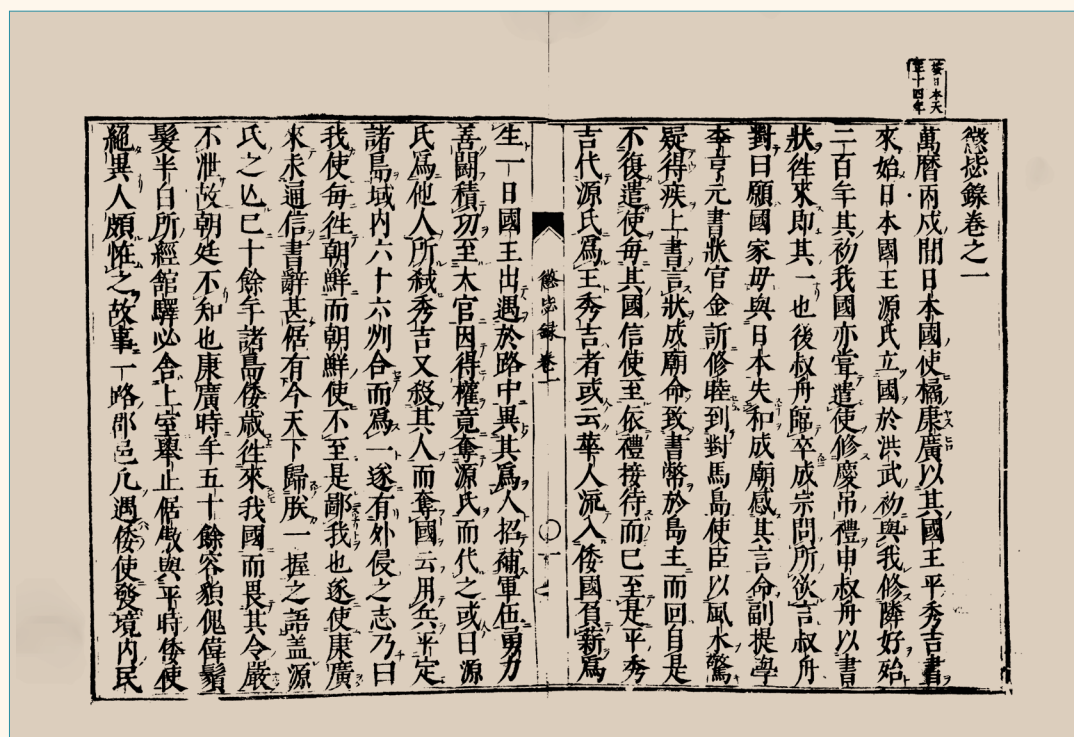 按日本天
正十四年
懲毖錄卷之一
萬曆丙戌間日本國使橘康廣以其國王平秀吉書
來始日本國王源氏立國於洪武初與我修隣好殆
二百年其初我國亦嘗遣使修慶吊禮申叔舟以書
狀徃來即其一也後叔舟臨卒成宗問所欲言叔舟
對曰願國家毋與日本失和成廟感其言命副提學
李亨元書狀官金訢修睦到對馬島使臣以風水驚
疑得疾上書言狀成廟命致書幣於島主而回自是
不復遣使每其國信使至依禮接待而已至是平秀
吉代源氏爲王秀吉者或云華人流入倭國負薪爲
懲毖録卷一 〇一
生一日國王出遇於路中異其爲人招補軍伍勇力
善鬪積功至大官因得權竟奪源氏而代之或曰源
氏爲他人所弑秀吉又殺其人而奪國云用兵平定
諸島域内六十六州合而爲一遂有外侵之志乃曰
我使每徃朝鮮而朝鮮使不至是鄙我也遂使康廣
來求通信書辭甚倨有今天下歸朕一握之語盖源
氏之亾已十餘年諸島倭歲徃來我國而畏其令嚴
不泄故朝廷不知也康廣時年五十餘容貌傀偉鬚
髮半白所經館驛必舍上室擧止倨傲與平時倭使
絕異人頗恠之故事一路郡邑凡遇倭使發境内民